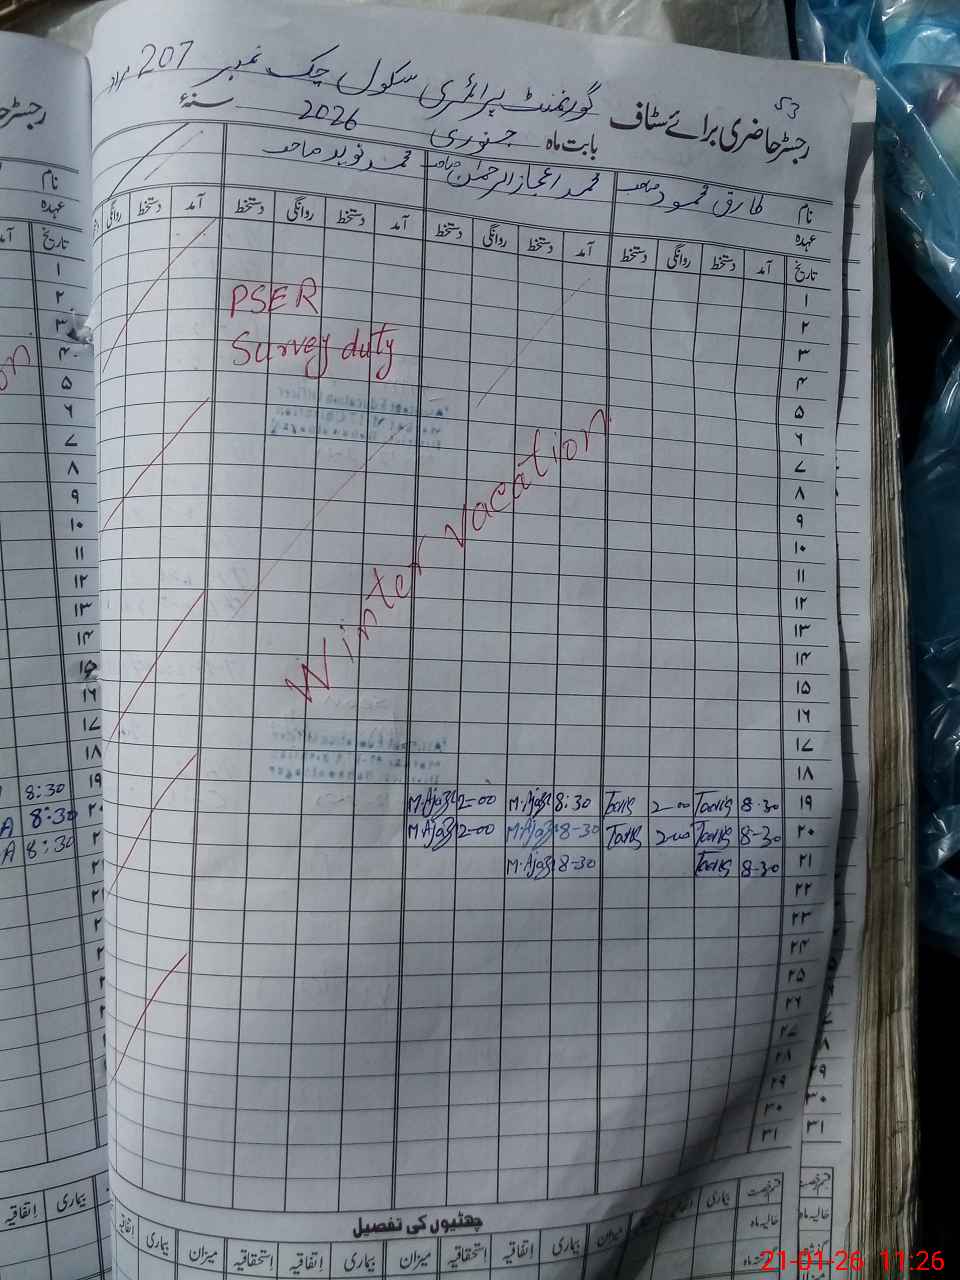 53
گورنمنٹ پرائمری سکول چک نمبر 207 مراد
رجسٹر حاضری برائے سٹاف بابت ماہ جنوری 2026 سنۂ
نام طارق محمود صاحب محمد اعجاز الرحمٰن صاحب محمد نوید صاحب
عہدہ
تاریخ آمد دستخط روانگی دستخط آمد دستخط روانگی دستخط آمد دستخط روانگی دستخط آمد دستخط روانگی
۱
۲
۳
۴
۵
۶
۷
۸
۹
۱۰
۱۱
۱۲
۱۳
۱۴
۱۵
۱۶
۱۷
۱۸
PSER
Survey duty
Winter vacation
۱۹ 8:30 Tariq 2-00 Tariq 8:30 M.Ajaz 2-00 M.Ajaz
۲۰ 8-30 Tariq 2-00 Tariq 8-30 M.Ajaz 2-00 M.Ajaz
۲۱ 8-30 Tariq 8-30 M.Ajaz
۲۲
۲۳
۲۴
۲۵
۲۶
۲۷
۲۸
۲۹
۳۰
۳۱
چھٹیوں کی تفصیل
بیماری میزان بیماری اِتفاقیہ اِستحقاقیہ میزان بیماری اِتفاقیہ اِستحقاقیہ میزان بیماری اِتفاقیہ
رجسٹر
نام
عہدہ
تاریخ
۱
۲
۳
۴
۵
۶
۷
۸
۹
۱۰
۱۱
۱۲
۱۳
۱۴
۱۵
۱۶
۱۷
۱۸
۱۹ 8:30
8:30 A
8:30 A
بیماری اِتفاقیہ
۲۹
۳۰
۳۱
21-01-26 11:26